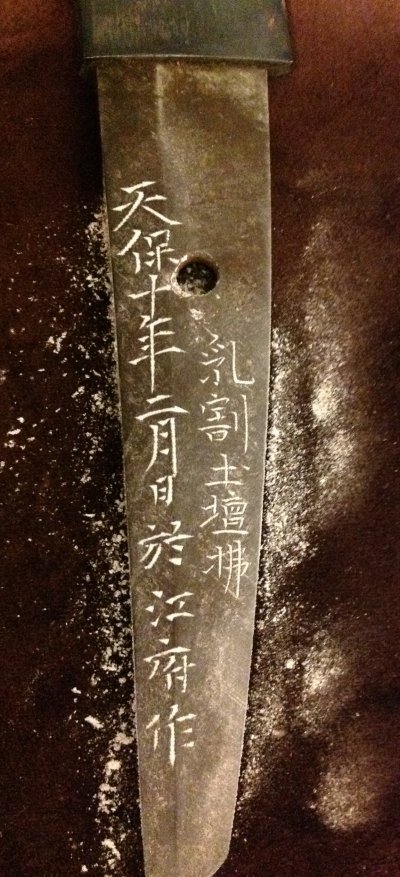 乳割土壇拂
天保十年二月日於江府作